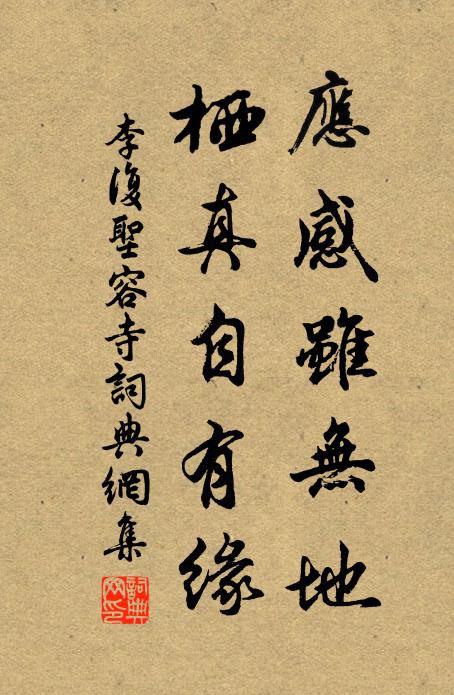 應感雖無地
栖真自有緣
李復聖容寺詞典網集
詞典網印